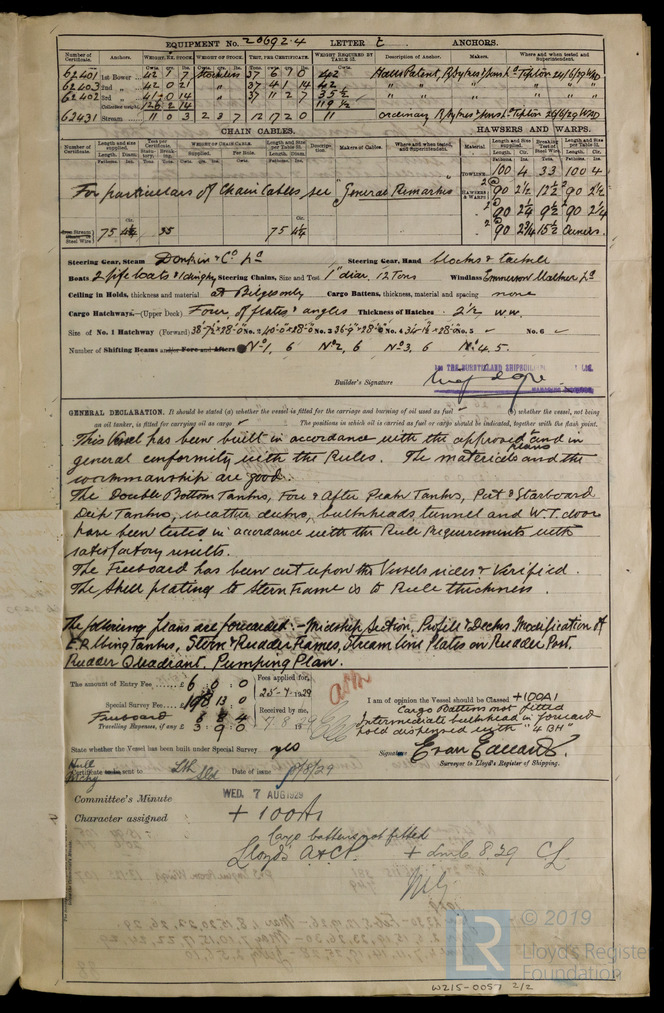 EQUIPMENT No. 20692.4 LETTER ANCHORS.
Number of Certificate. Anchors. WEIGHT, EX. STOCK. WEIGHT OF STOCK. TEST, PER CERTIFICATE. WEIGHT REQUIRED BY TABLE 31. Description of Anchor. Makers. Where and when tested and Superintendent.
62401 1st Bower 42 7 7 Stockless 37 6 7 0 42
62403 2nd " 42 0 21 " 37 4 1 14 42
62402 3rd " 41 0 14 " 37 11 2 7 35½
126 2 14 119½
62431 Stream 11 0 3 2 3 7 12 17 2 0 11 ordinary
CHAIN CABLES. HAWSERS AND WARPS.
Number of Certificate. Length and size supplied. WEIGHT OF CHAIN CABLE. Length and Size per Table 31. Description. Makers of Cables. Where and when tested, and Superintendent. Material Length and Size supplied. Breaking Test of Steel Wire. Length and Size per Table 31.
TOWLINE 100 4 33 100 4
For particulars of Chain Cables see "General Remarks"
HAWSERS & WARPS 90 2½ 12½ 90 2½
90 2¼ 9½ 90 2¼
90 2¾ 15½ Owners.
Steel Wire 75 4¼ 35 75 4¼
Steering Gear, Steam Donkin & Co Ld Steering Gear, Hand blocks & tackle
Boats 2 life boats & 1 dinghy Steering Chains, Size and Test 1" diar. 12 Tons Windlass Emmerson Walker Ld
Ceiling in Holds, thickness and material at Bilges only Cargo Battens, thickness, material and spacing none
Cargo Hatchways.—(Upper Deck) Four, of plates & angles Thickness of Hatches 2½ w.w.
Size of No. 1 Hatchway (Forward) 38'-7½" x 28'-0" No. 2 40'-0" x 28'-0" No. 3 36'-9" x 28'-0" No. 4 No. 5 ✓ No. 6 ✓
Number of Shifting Beams and/or Fore and Afters No 1, 6 No 2, 6 No 3, 6 No 4. 5.
Builder's Signature
GENERAL DECLARATION. It should be stated (a) whether the vessel is fitted for the carriage and burning of oil used as fuel ✓ (b) whether the vessel, not being
an oil tanker, is fitted for carrying oil as cargo ✓ The positions in which oil is carried as fuel or cargo should be indicated, together with the flash point.
This Vessel has been built in accordance with the approved plans and in
general conformity with the Rules. The materials and the
workmanship are good.
The Double Bottom Tanks, Fore & After Peak Tanks, Port & Starboard
Deep Tanks, weather decks, bulkheads, tunnel and W.T. door
have been tested in accordance with the Rule Requirements with
satisfactory results.
The Freeboard has been cut upon the Vessels sides & Verified.
The Shell plating to Stern Frame is to Rule thickness.
The following plans are forwarded:- Midship Section, Profile & Decks, Modification of
E.R. Wing Tanks, Stern & Rudder Frames, Stream line Plates on Rudder Post.
Rudder Quadrant. Pumping Plan.
The amount of Entry Fee £ 6 : 0 : 0 Fees applied for,
Special Survey Fee 198 13 0 25-7-1929
Freeboard 6 8 4 Received by me,
Travelling Expenses, if any £ 3 9 0 7 8 29
I am of opinion the Vessel should be Classed +100A1
Cargo Battens not fitted
Intermediate bulkhead in forward
hold dispensed with "4 BH"
State whether the Vessel has been built under Special Survey yes
Signature Evan Edwards.
Surveyor to Lloyd's Register of Shipping.
Certificate to be sent to Sld Date of issue 8/8/29
Committee's Minute WED. 7 AUG 1929
Character assigned +100A1
Cargo battens not fitted
Lloyd's A&CP. + LMC 8.29 CL
LR © 2019
Lloyd's Register
Foundation
W215-0057 2/2